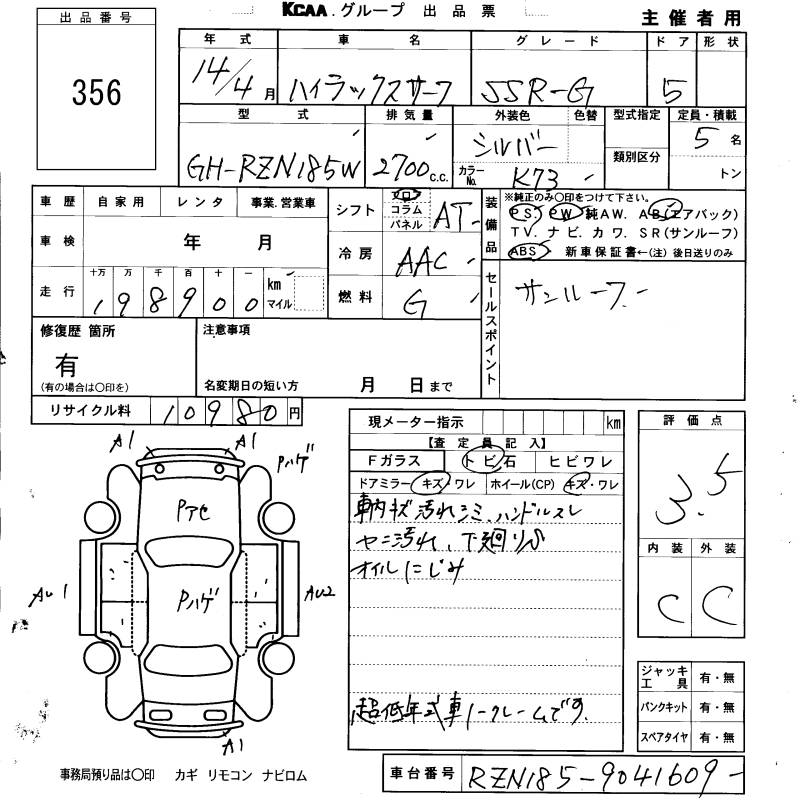 KCAA.グループ 出品票
主催者用
出品番号
356
年式 車名 グレード ドア 形状
14/4月 ハイラックスサーフ SSR-G 5
型式 排気量 外装色 色替 型式指定 定員・積載
GH-RZN185W 2700c.c. シルバー 5名
カラーNo. K73 類別区分 トン
車歴 自家用 レンタ 事業.営業車
シフト フロ コラム パネル AT
装備品 ※純正のみ○印をつけて下さい。
PS. PW 純AW. AB(エアバック)
TV. ナビ. カワ. SR(サンルーフ)
ABS 新車保証書←(注)後日送りのみ
車検 年 月
冷房 AAC
走行 十万 万 千 百 十 一 km マイル
198900
燃料 G
セールスポイント サンルーフ
修復歴 箇所
有
(有の場合は○印を)
注意事項
名変期日の短い方 月 日まで
リサイクル料 10980円
現メーター指示 km
【査定員記入】
Fガラス トビ石 ヒビワレ
ドアミラー キズ・ワレ ホイール(CP) キズ・ワレ
車内キズ汚れシミ、ハンドルスレ
ヤニ汚れ、下廻りサビ
オイルにじみ
超低年式車ノークレームです.
評価点
3.5
内装 外装
C C
ジャッキ工具 有・無
パンクキット 有・無
スペアタイヤ 有・無
A1 A1 Pハゲ
Pアセ
AU1 Pハゲ AU2
A1
事務局預り品は○印 カギ リモコン ナビロム
車台番号 RZN185-9041609